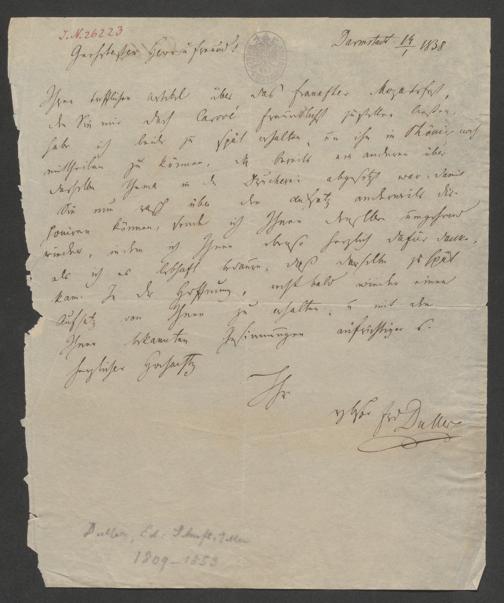 I.N. 26223
Darmstadt 14/1 1838
Geehrtester Herr u Freund!
Ihren trefflichen Artikel über das Frankfter Mozartfest,
den Sie mir durch Carové freundlichst zustellen ließen,
habe ich leider zu spät erhalten, um ihn in Phönix noch
mittheilen zu können, da bereits ein anderer über
dasselbe Thema in der Druckerei abgesetzt war. Damit
Sie nun rasch über den Aufsatz anderweits dis-
poniren können, sende ich Ihnen denselben umgehend
wieder, indem ich Ihnen ebenso herzlich dafür danke,
als ich es lebhaft bedaure, daß derselbe zu spät
kam. In der Hoffnung, recht bald wieder einen
Aufsatz von Ihnen zu erhalten, u mit den
Ihnen bekannten Gesinnungen aufrichtiger u.
herzlicher Hochachtg
Ihr
Duller
Duller, Ed. Schriftsteller
1809-1853